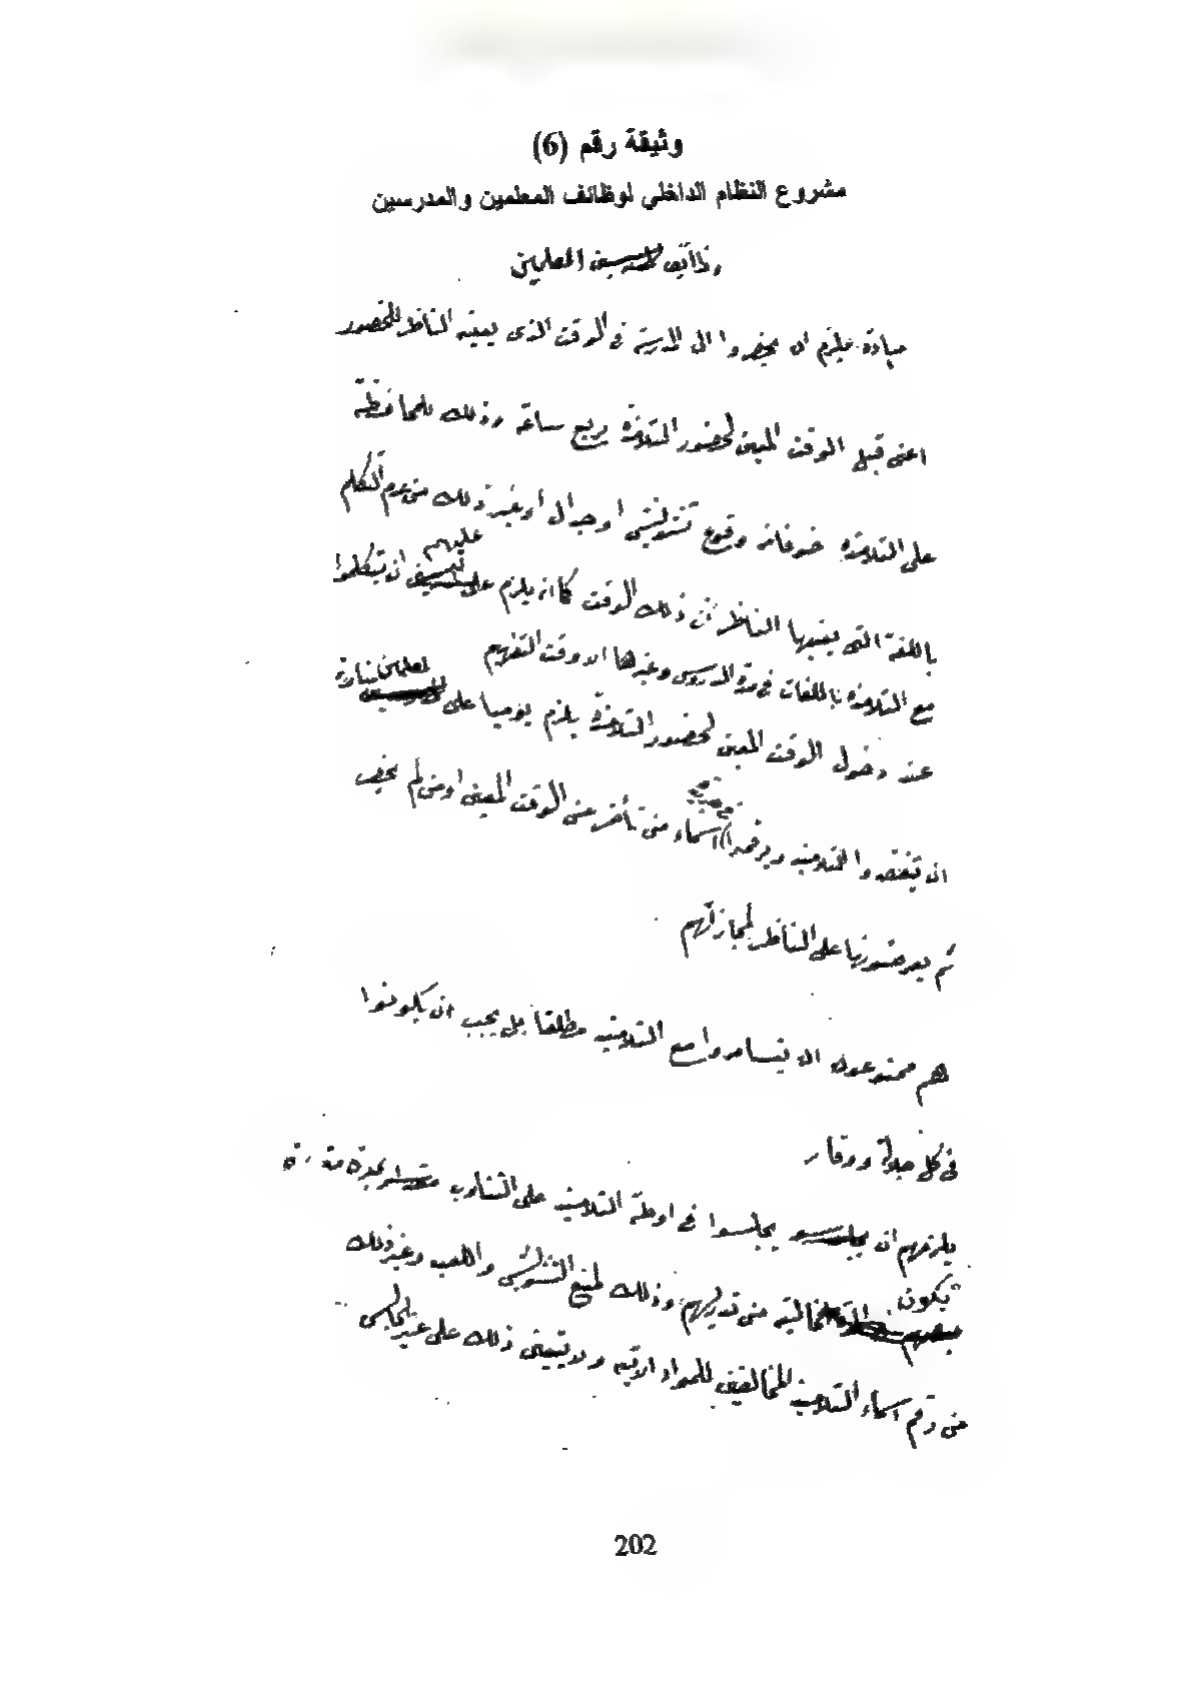 وثيقة رقم (6)
مشروع النظام الداخلي لوظائف المعلمين والمدرسين
وظائف المعلمين
يلزم ان يحضروا الى المدرسة فى الوقت الذى يعينه الناظر للحضور
اعنى قبل الوقت المعين لحضور التلامذة بربع ساعة وذلك للمحافظة
على التلامذة خوفا من وقوع تشويش او جدال أو غير ذلك من عدم التكلم
باللغة التى يعينها الناظر فى ذلك الوقت كما انه يلزم عليهم ان يتكلموا
مع التلامذة باللغات فى مدة الدروس وغيرها الا وقت التفهيم
عند دخول الوقت المعين لحضور التلامذة يلزم يوميا على
ان يتفقدوا التلاميذ ويرقموا اسماء من تأخر عن الوقت المعين او من لم يحضر
ثم يعرضونها على الناظر لمجازاتهم
هم ممنوعون ان يتسامروا مع التلاميذ مطلقا بل يجب ان يكونوا
فى كل جلالة ووقار
يلزمهم ان يجلسوا فى اوطة التلاميذ على التناوب
تكون خالية من تدريسهم وذلك لمنع التشويش واللعب وغير ذلك
من رقم اسماء التلاميذ المخالفين للمواد الاتية ولا ينبغى ذلك على غير الجالس
202